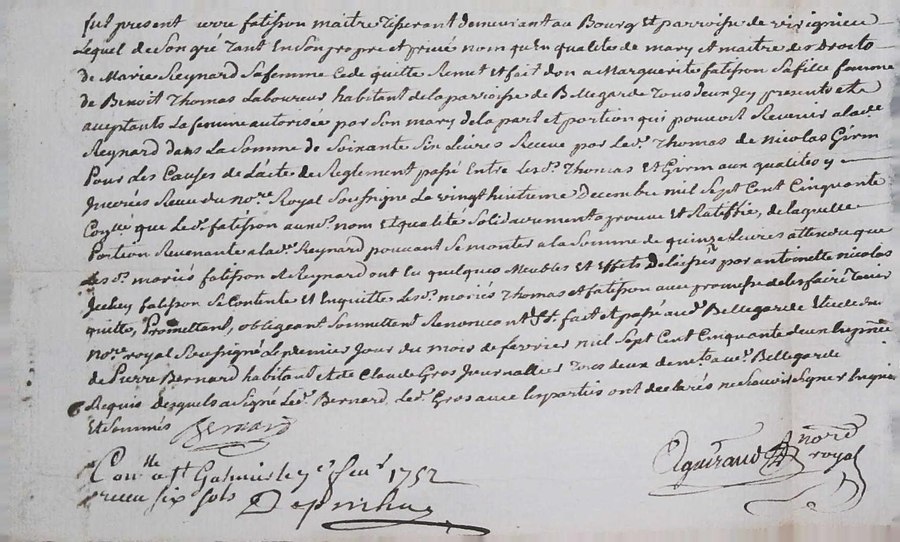 fut present fatisson maitre tisserant demeurant au Bourg et parroisse de virignieu
Lequel de son gré tant En son propre et privé nom qu'En qualité de mary et maitre des Droits
de Marie Reynard sa femme Cede quitte Remet et fait don a Marguerite fatisson sa fille femme
de Benoit Thomas Laboureur habitant de la parroisse de Bellegarde tous deux jcy presents et
aceptants La femme autorisée par son mary de la part et portion qui pouvoit Revenir a lade.
Reynard dans La Somme de Soixante Livres Receue par led. Thomas de nicolas
Pour des Causes de L'acte de Reglement passé Entre lesd. Thomas Et aux qualites y
du no.re Royal Soussigné Le vingt huitieme Decembre mil Sept Cent Cinquante
que Led. fatisson aux d. nom Et qualité Solidairement aprouve Et Ratiffie, de laquelle
Portion Revenante a lad. Reynard pouvant Se monter a la Somme de quinze Livres attendu que
Lesd. mariés fatisson et Reynard ont Eu quelques Meubles Et Effets Delaissés par antoinette nicolas
fatisson Se Contente Et Enquitte Les d. mariés Thomas et fatisson avec promesse de les faire tenir
quitte, Promettant, obligeant Soumettant Renoncant &. fait et passé aud. Bellegarde Etude du
no.re royal Soussigné Le premier Jour du mois de fevrier mil Sept Cent Cinquante deux En pnce
de Pierre Bernard habitant et de Claude Gros Journallier tous deux dem.ts aud. Bellegarde
Requis Desquels a Signé Led. Bernard, Led. Gros avec les parties ont declarés ne Savoir Signer Enquis
Et Sommés Bernard
no.re royal
Con.lle a St Galmier le 7e fev.r 1752
receu six sols